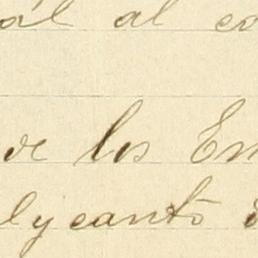 al al co
de los En
lycanto